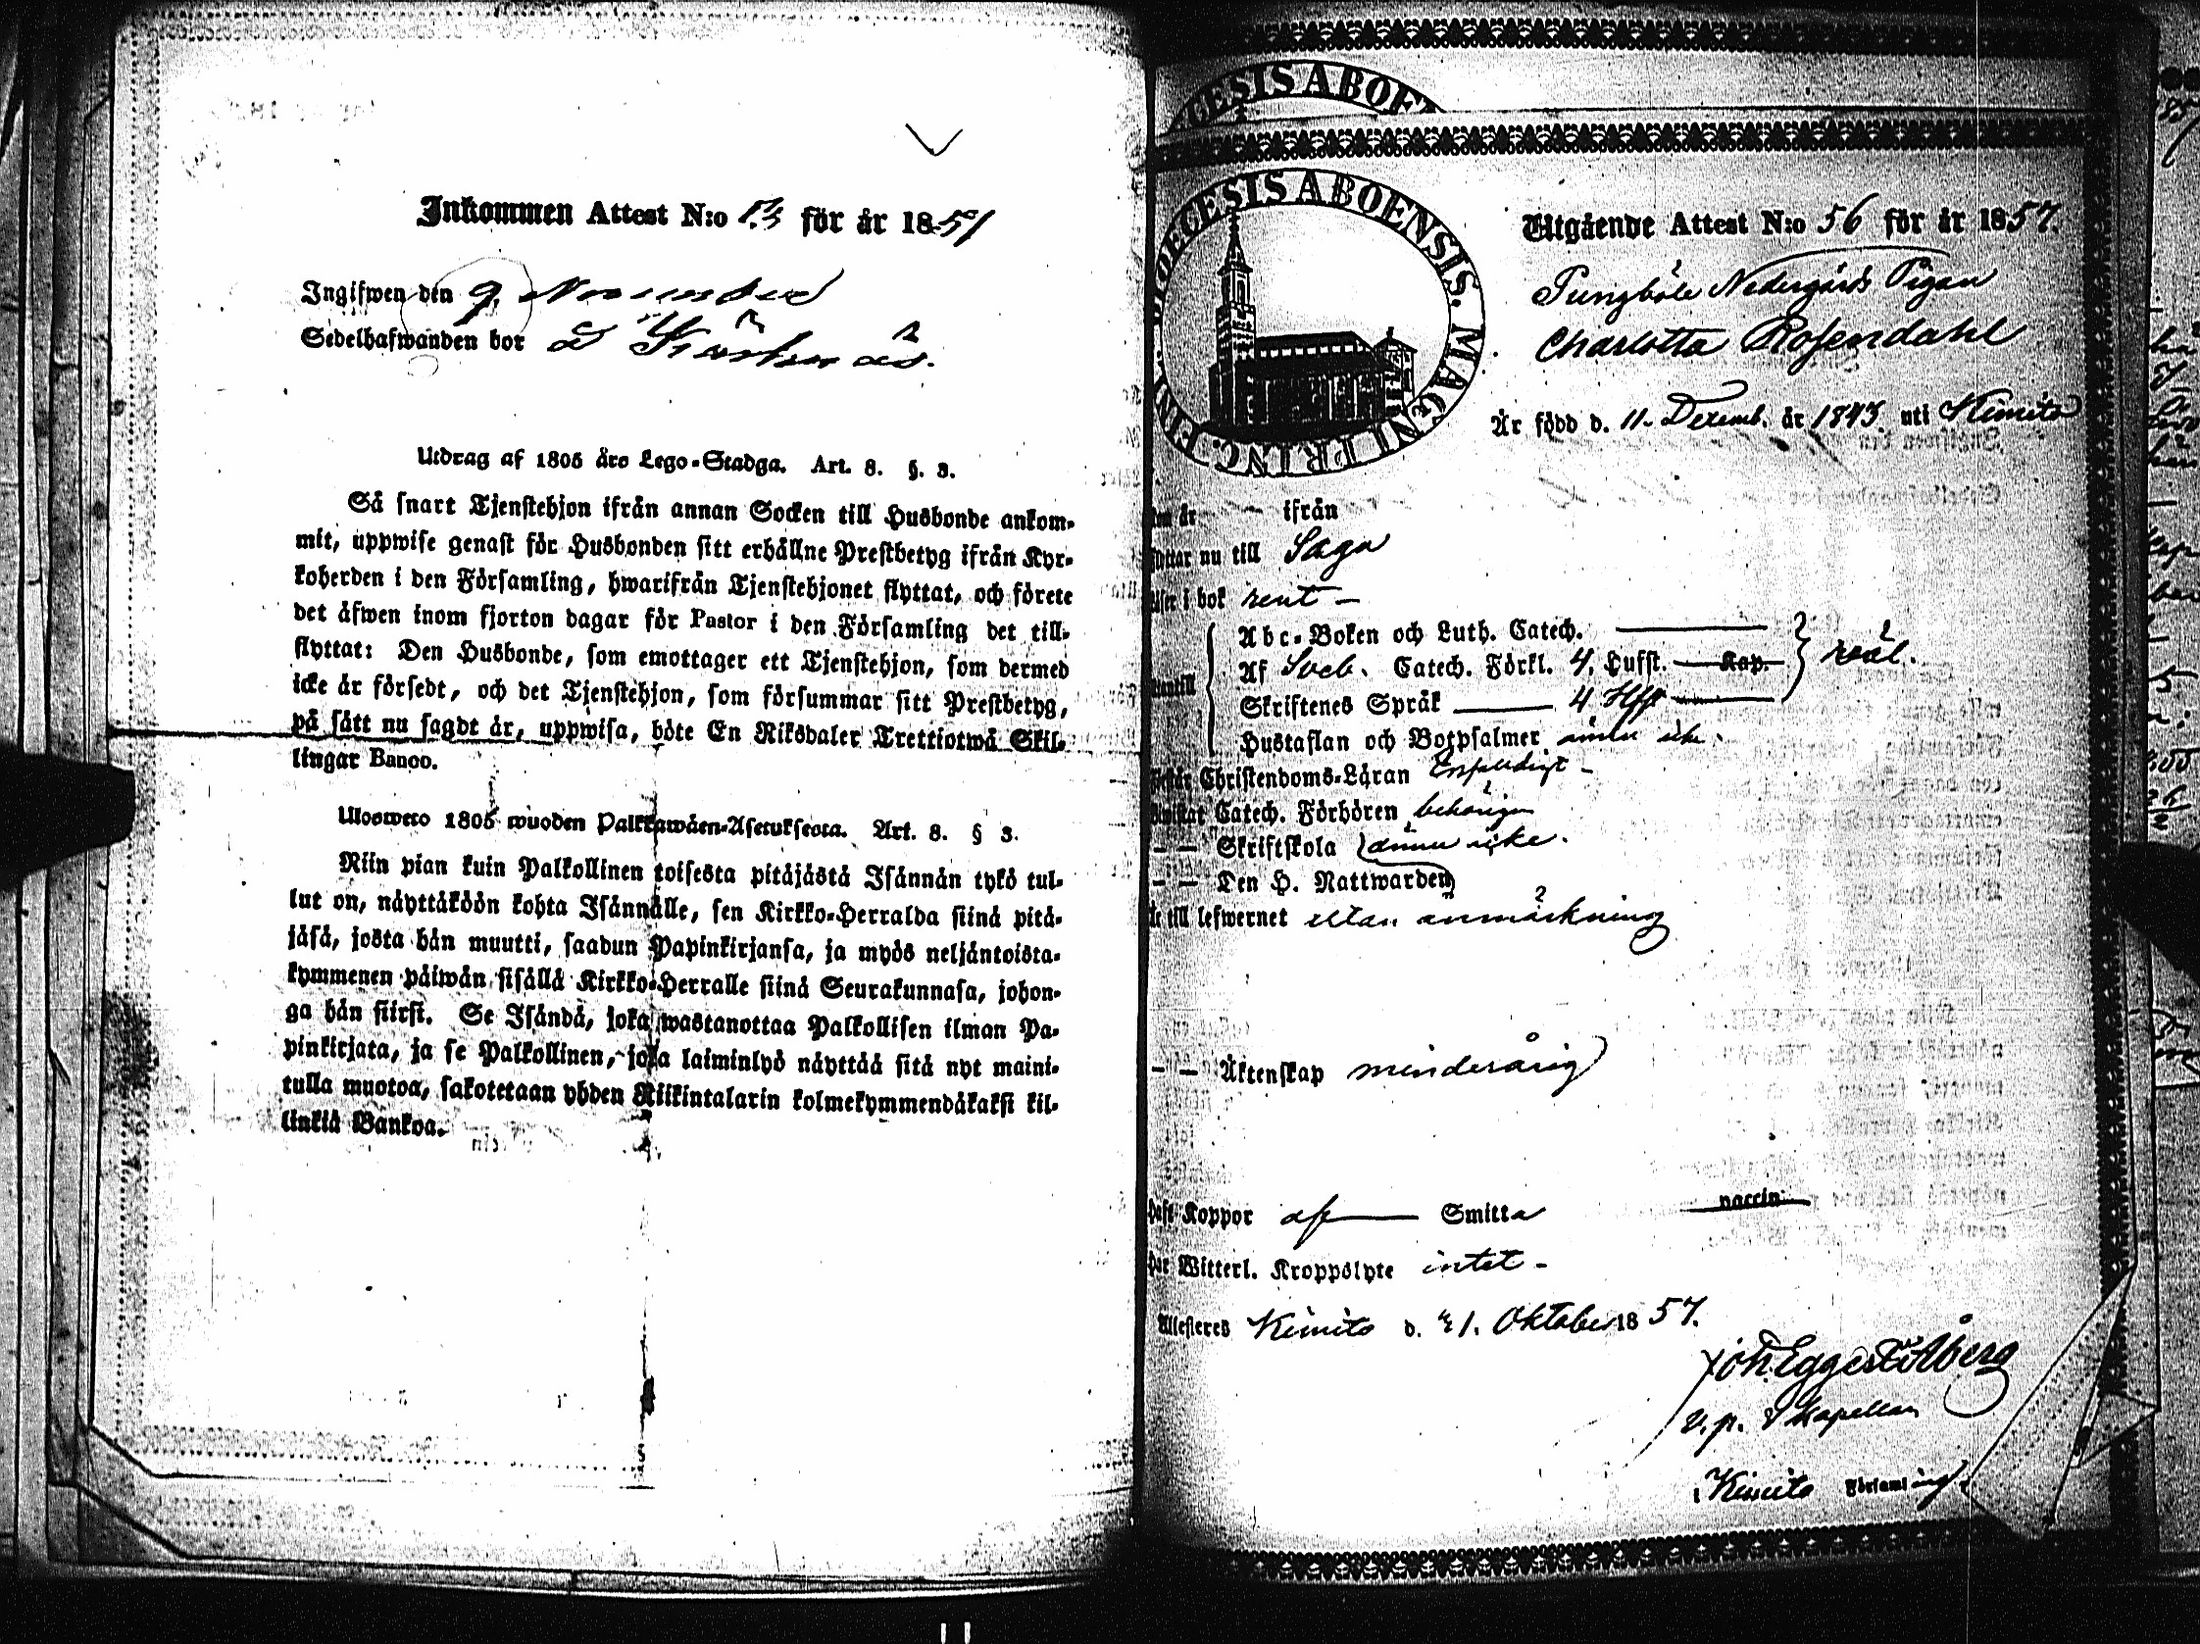 Inkommen Attest N:o 13 för år 1857
Ingifwen den 9 November
Sedelhafwanden bor å
Utdrag af 1805 års Lego-Stadga. Art. 8. §. 3.
Så snart Tjenstehjon ifrån annan Socken till Husbonde ankom-
mit, uppwise genast för Husbonden sitt erhållne Prestbetyg ifrån Kyr-
koherden i den Församling, hwarifrån Tjenstehjonet flyttat, och förete
det äfwen inom fjorton dagar för Pastor i den Församling det till-
flyttat: Den Husbonde, som emottager ett Tjenstehjon, som dermed
icke är försedt, och det Tjenstehjon, som försummar sitt Prestbetyg,
på sätt nu sagdt är, uppwisa, böte En Riksdaler Trettiotwå Skil-
lingar Banco.
Ulosweto 1805 wuoden Palkkawäen-Asetuksesta. Art. 8. § 3.
Niin pian kuin Palkollinen toisesta pitäjästä Isännän tykö tul-
lut on, näyttäköön kohta Isännälle, sen Kirkko-Herralda siinä pitä-
jäsä, josta hän muutti, saadun Papinkirjansa, ja myös neljäntoista-
kymmenen päiwän sisällä Kirkko-Herralle siinä Seurakunnasa, johon-
ga hän siirsi. Se Isändä, joka wastanottaa Palkollisen ilman Pa-
pinkirjata, ja se Palkollinen, joka laiminlyö näyttää sitä nyt maini-
tulla muotoa, sakotetaan yhden Riikintalarin kolmekymmendäkaksi kil-
linkiä Bankoa.
DIOECESIS ABOENSIS. MAGNI PRINC. FINL.
Utgående Attest N:o 56 för år 1857.
Pungböle Nedergårds Pigan
Charlotta Rosendahl
Är född d. 11. Decemb. år 1843. uti Kimito
år ifrån
flyttar nu till Sagu
läser i bok rent –
Abc-Boken och Luth. Catech.
Af Sveb. Catech. Förkl. 4. Hufst. Kap. wäl.
Skriftenes Språk 4 Hfst
Hustaflan och Botpsalmer ännu icke.
Christendoms-Läran Enfaldigt –
Catech. Förhören behörigen
– – Skriftskola ännu icke.
– – Den H. Nattwarden
är till lefwernet utan anmärkning
– – Äktenskap minderårig
haft Koppor af Smitta vaccin
har Witterl. Kroppslyte intet –
Attesteres Kimito d. 21. Oktober 1857.
Joh. Eggert Åberg
v.p. Kapellan
i Kimito Församling.